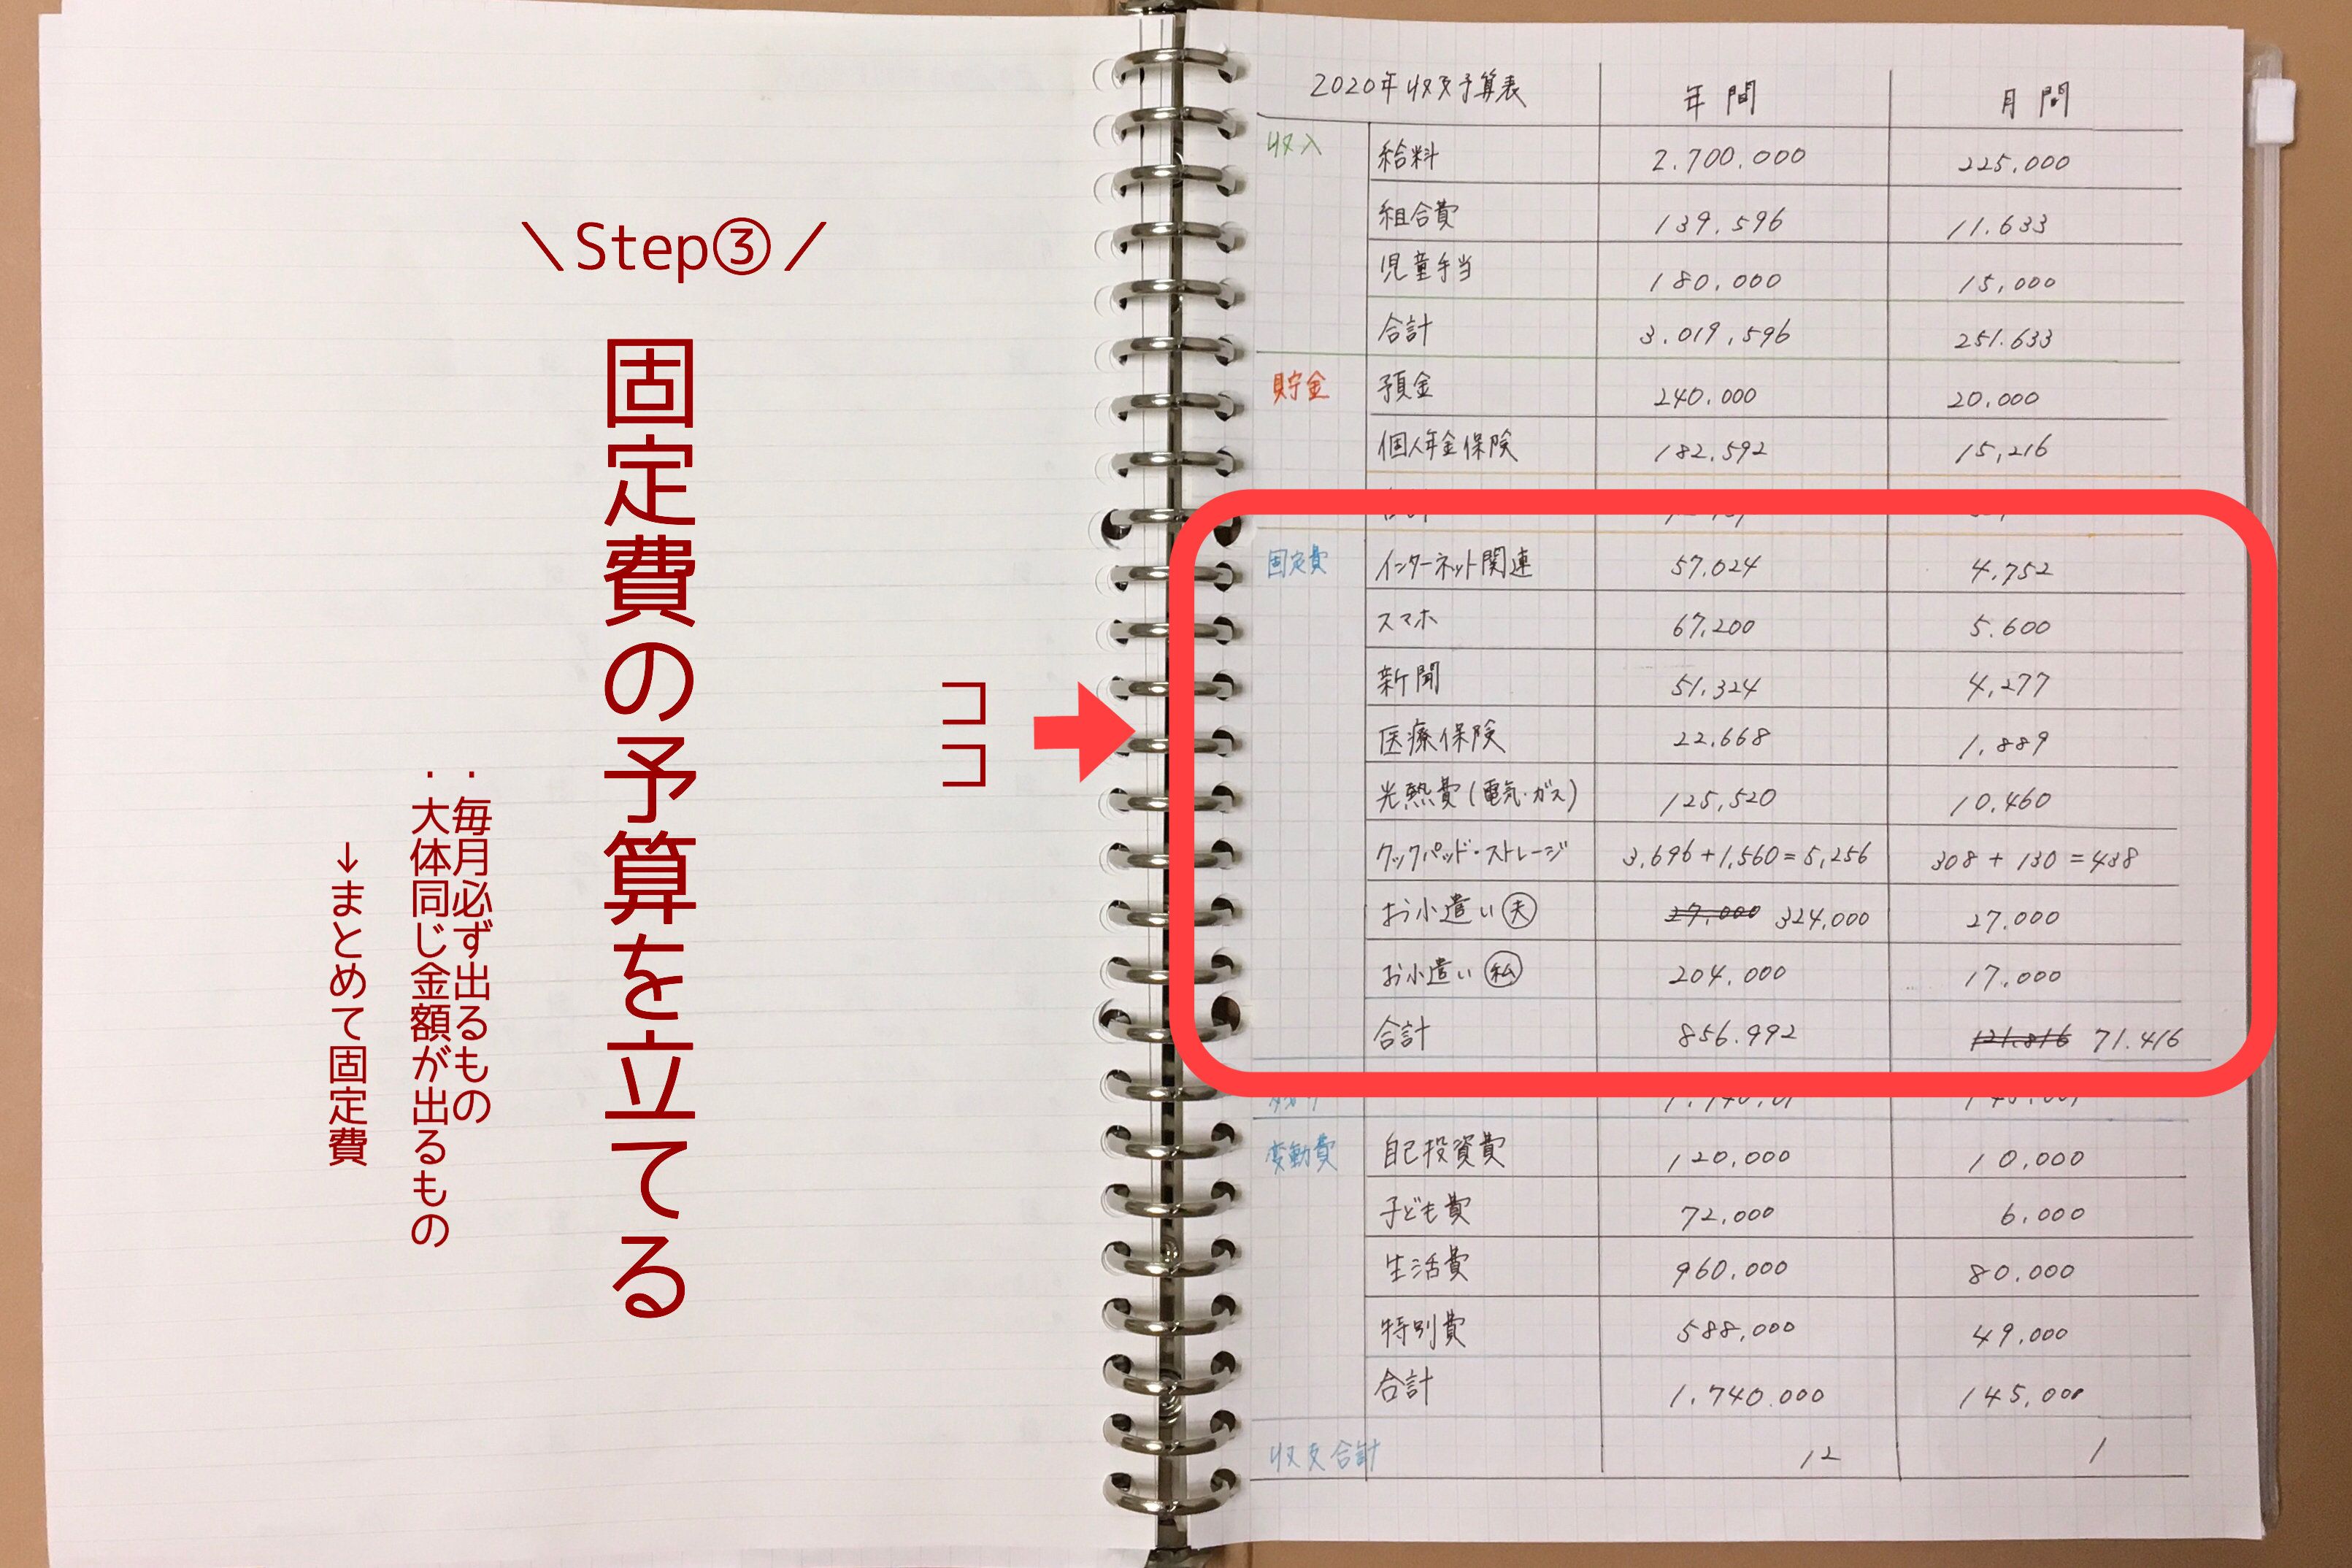 \Step③/
固定費の予算を立てる
・毎月必ず出るもの
・大体同じ金額が出るもの
↓まとめて固定費
ココ
2020年収支予算表 年間 月間
収入 給料 2.700.000 225.000
組合費 139.596 11.633
児童手当 180.000 15,000
合計 3.019,596 251.633
貯金 預金 240.000 20.000
個人年金保険 182.592 15,216
固定費 インターネット関連 57.024 4.752
スマホ 67.200 5.600
新聞 51.324 4,277
医療保険 22.668 1.889
光熱費(電気・ガス) 125,520 10.460
クックパッド・ストレージ 3.696+1,560=5,256 308+130=438
お小遣い(夫) 27,000 324,000 27.000
お小遣い(私) 204.000 17,000
合計 856.992 121.816 71.416
変動費 自己投資費 120,000 10,000
子ども費 72,000 6,000
生活費 960.000 80.000
特別費 588,000 49,000
合計 1.740.000 145,000
収支合計 12 1